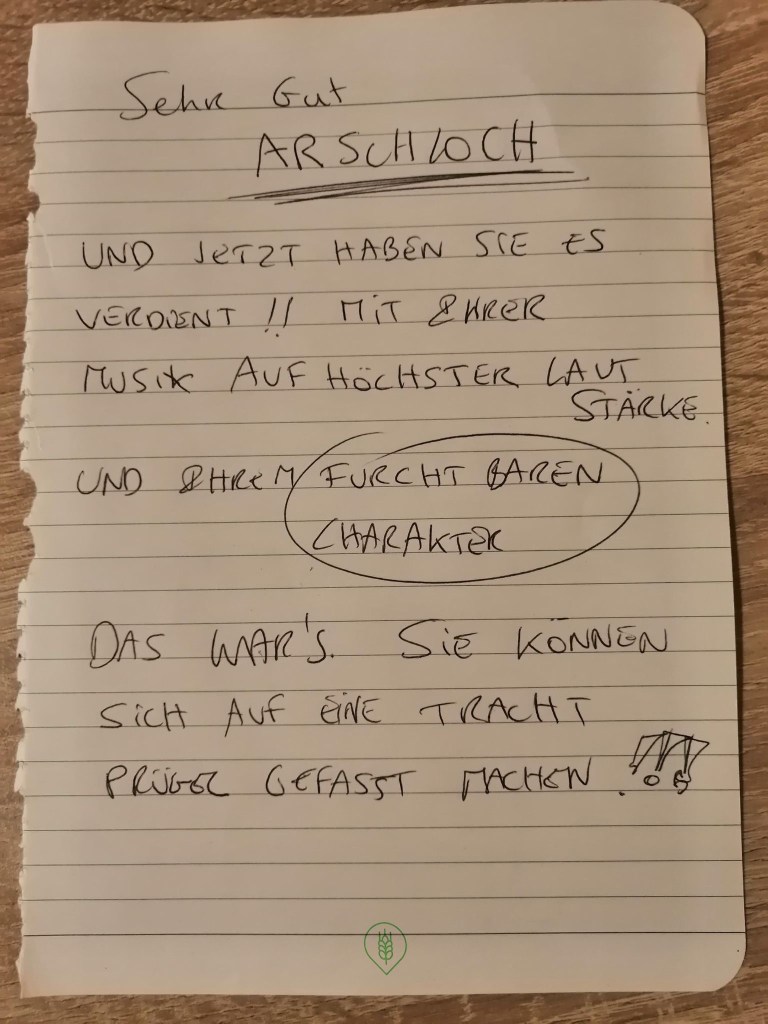 Sehr Gut
ARSCHLOCH
UND JETZT HABEN SIE ES
VERDIENT !! MIT IHRER
MUSIK AUF HÖCHSTER LAUT
STÄRKE.
UND IHREM FURCHT BAREN
CHARAKTER
DAS WAR'S. SIE KÖNNEN
SICH AUF EINE TRACHT
PRÜGEL GEFASST MACHEN !!!